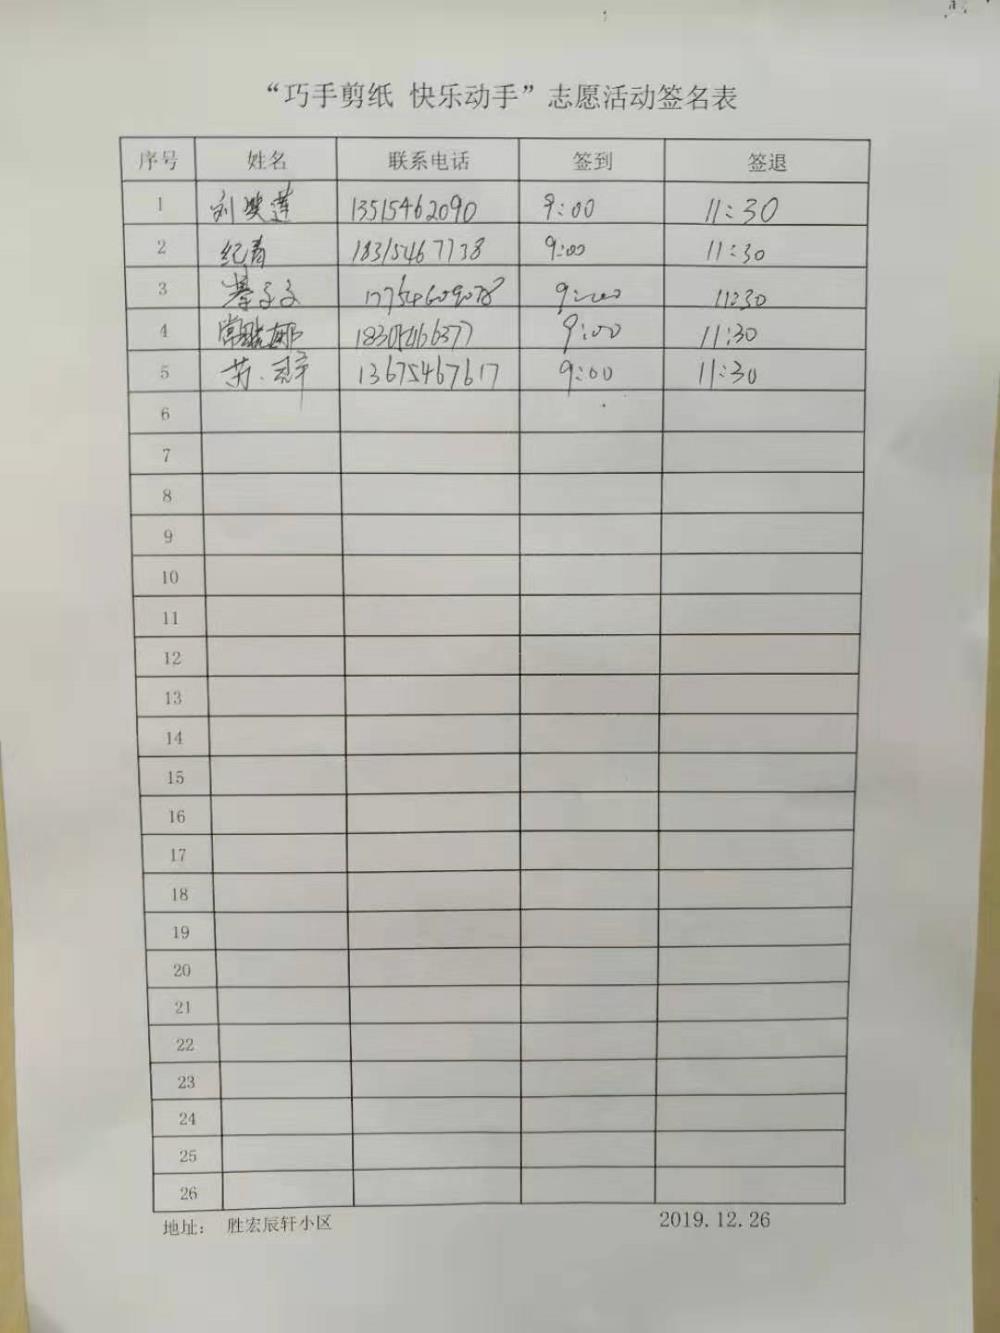 “巧手剪纸 快乐动手”志愿活动签名表
序号 姓名 联系电话 签到 签退
1 刘 莲 13515462090 9:00 11:30
2 纪青 18315467738 9:00 11:30
3 17754609078 9:00 11:30
4 常 娜 9:00 11:30
5 13675467617 9:00 11:30
6
7
8
9
10
11
12
13
14
15
16
17
18
19
20
21
22
23
24
25
26
地址: 胜宏辰轩小区 2019.12.26